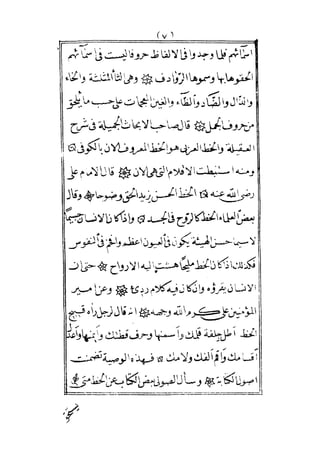 (٧)
اسمائهم فلما وجدوا فى الالفاظ حروفا ليست فى اسمائهم
الحقوها بها وسموها الروادف وهى الثاء المثلثة والخاء
والذال والضاد والظاء والغين المعجمات على حسب ما يلحق
من حروف الجمل قال صاحب الابحاث الجميلة فى شرح
العقيلة والخط العربى هو الخط المعروف الان بالكوفى
ومنه استنبطت الاقلام التى هى الان قال الامام على
رضى الله عنه الخط الحسن يزيد الحق وضوحا وقال
بعض العلماء الخط كالروح فى الجسد واذا كان الانسان جسيما
لاسيما حسن الهيئة يكون فى العيون اعظم وافخم فى النفوس
فكذلك اذا كان الخط مليحا هشت اليه الارواح حتى ان
الانسان يقرؤه وان كان فيه كلام ردئ وعن امير
المؤمنين على كرم الله وجهه انه قال لرجل راه قبيح
الخط اطل جلفة قلمك واسمنها وحرف قطتك وايمنها واعدل
اقسامك واقم الفك ولامك فهذه الوصية تضمنت
اصول الكتابة وسأل الصولى بعض الكتاب عن الخط متى
يستحق